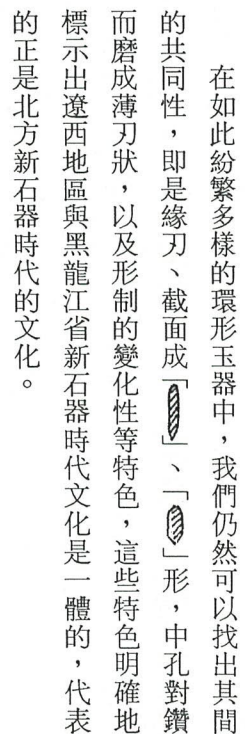 在如此紛繁多樣的環形玉器中，我們仍然可以找出其間
的共同性，即是緣刃、截面成「」、「」形，中孔對鑽
而磨成薄刃狀，以及形制的變化性等特色，這些特色明確地
標示出遼西地區與黑龍江省新石器時代文化是一體的，代表
的正是北方新石器時代的文化。